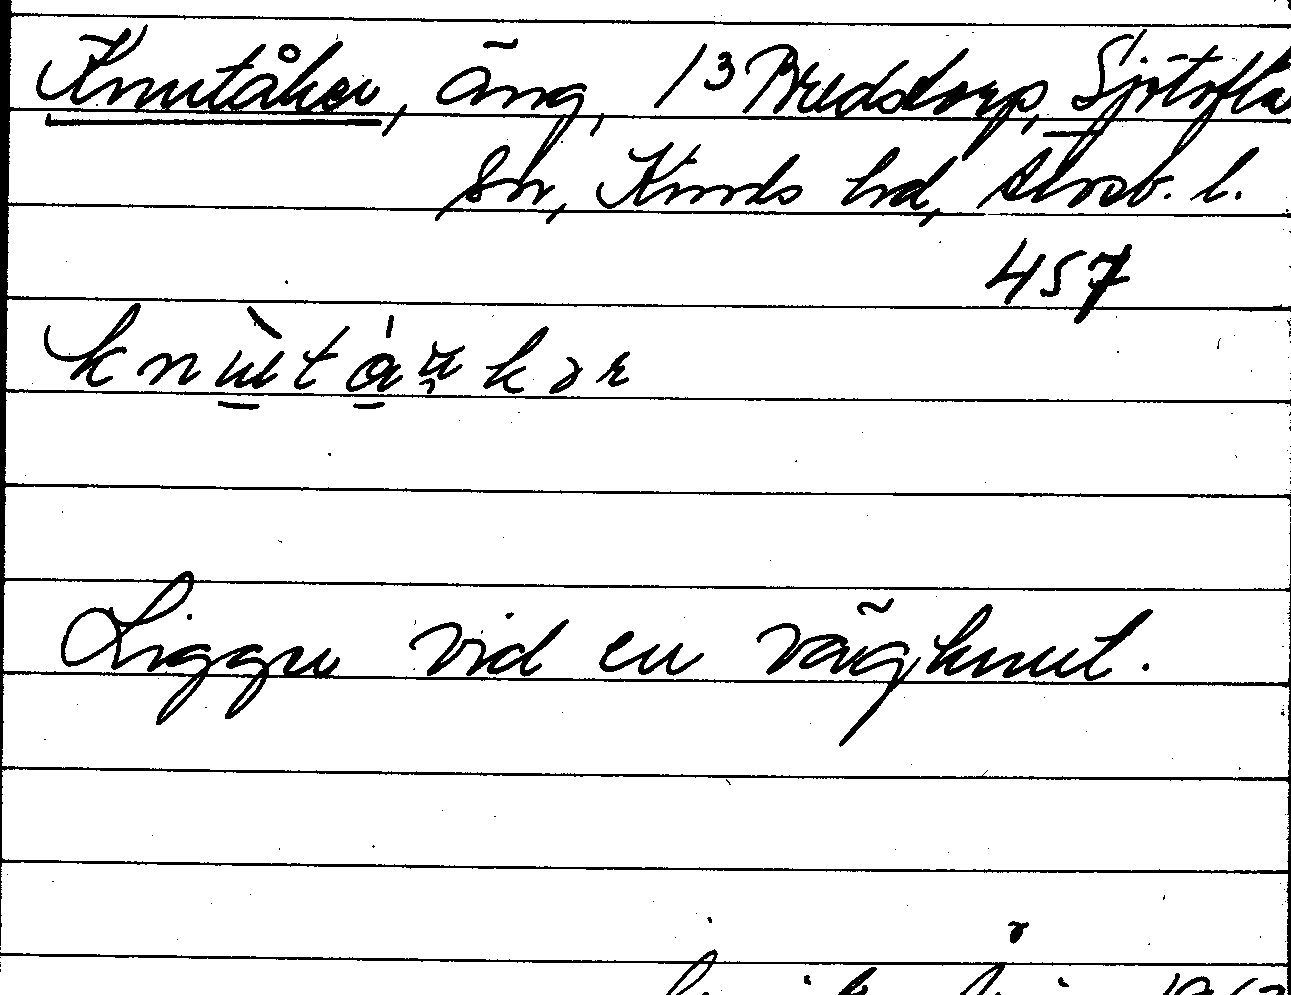 Knutåker, äng, 1³ Bredstorp, Sjötofta
sn, Kinds hd, Älvsb. l.
457
Ligger vid en vägknut.